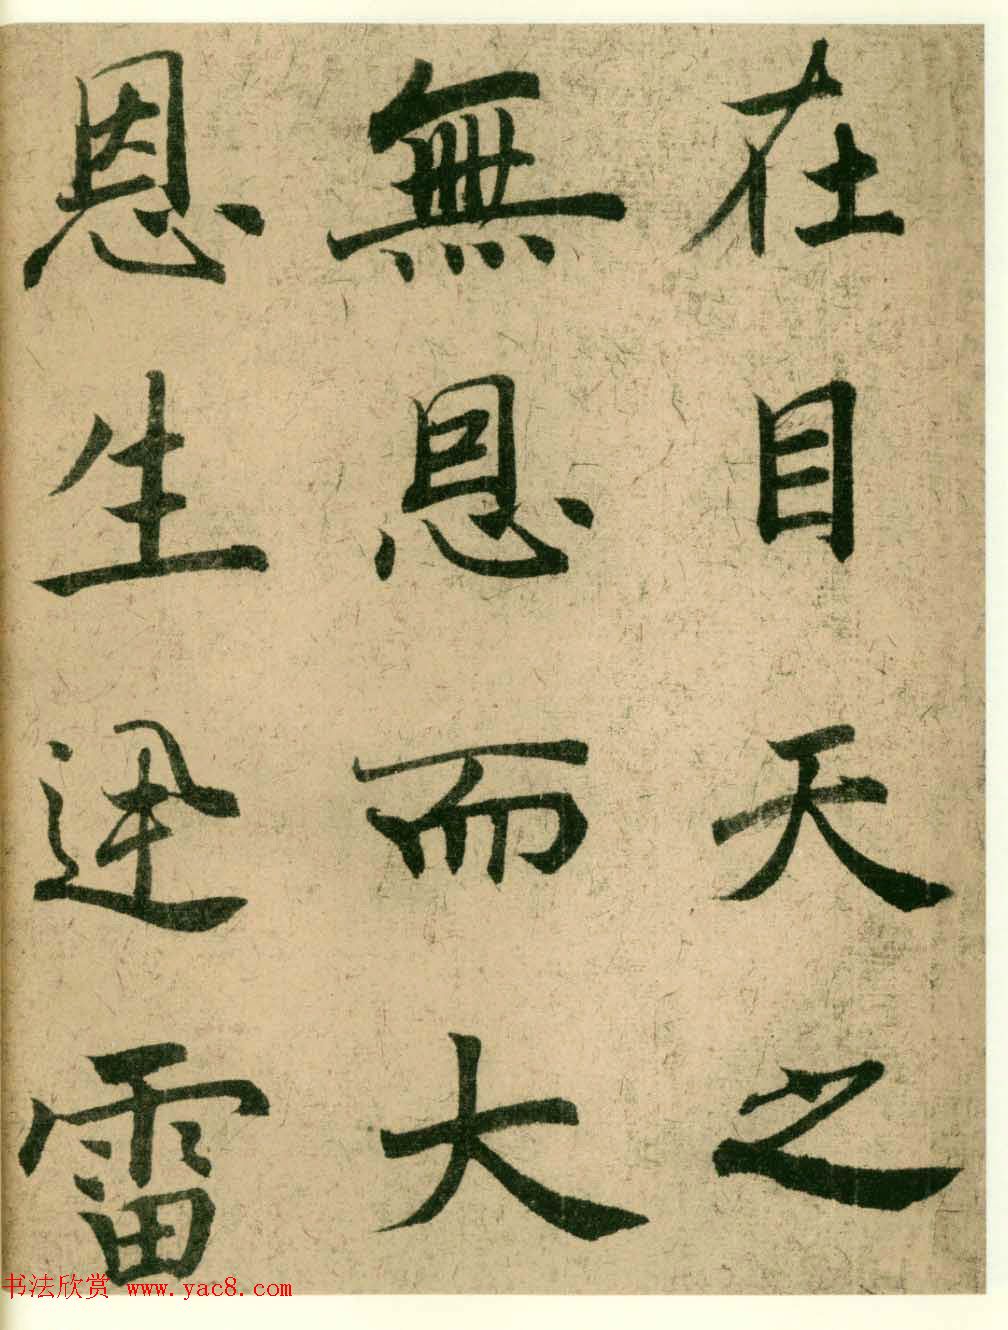 在目天之
無恩而大
恩生迅雷
书法欣赏 www.yac8.com